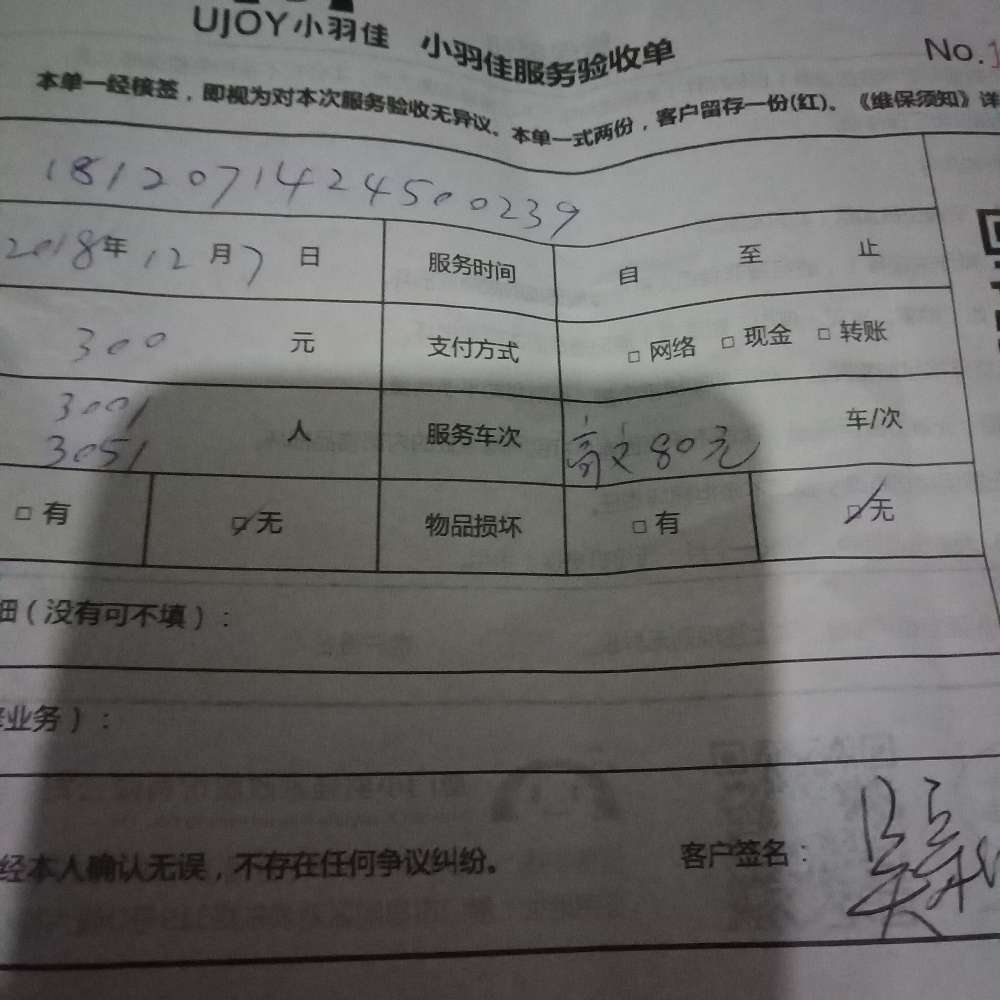 UJOY小羽佳 小羽佳服务验收单 No.1
本单一经核签，即视为对本次服务验收无异议。本单一式两份，客户留存一份(红)。《维保须知》详
18120714245500239
2018年12月7日 服务时间 自 至 止
300 元 支付方式 □ 网络 □ 现金 □ 转账
3001
3051 人 服务车次 高文80元 车/次
□ 有 ☑ 无 物品损坏 □ 有 ☑ 无
细（没有可不填）：
业务）：
经本人确认无误，不存在任何争议纠纷。 客户签名：